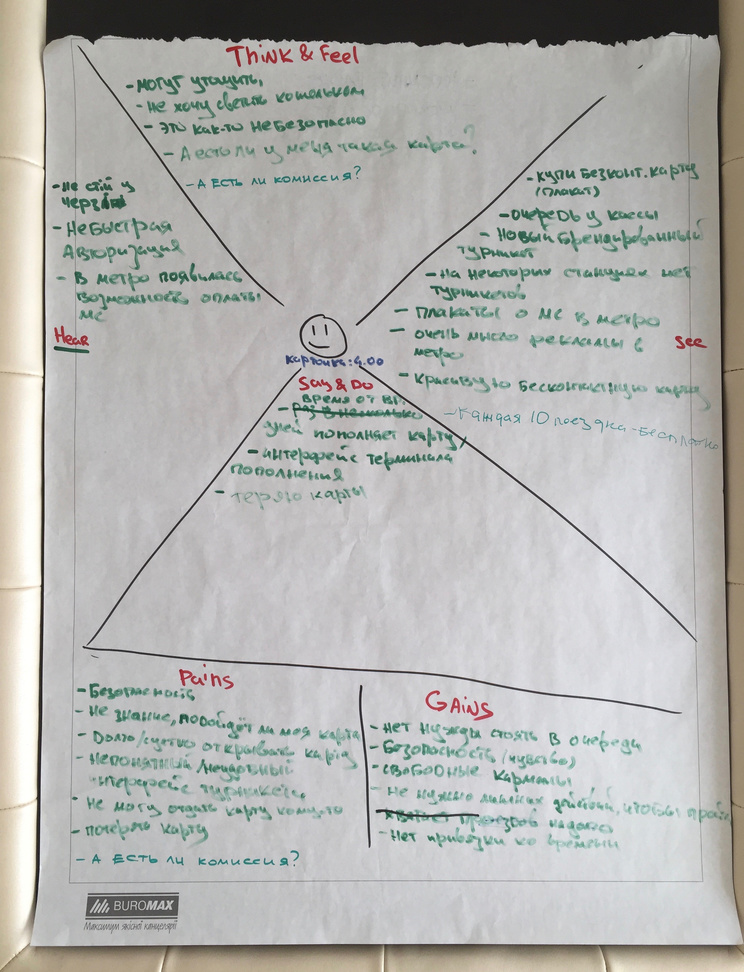 Think & Feel
- могут утащить,
- не хочу светить кошельком
- это как-то небезопасно
- А есть ли у меня такая карта?
- А ЕСТЬ ЛИ КОМИССИЯ?
- Не стій у
черзі
- Небыстрая
Авторизация
- В метро появилась
возможность оплаты
МС
Hear
- купи безконт. карту
(плакат)
- очередь у кассы
- Новый брендированный
турникет
- на некоторых станциях нет
турникетов
- плакаты о МС в метро
- очень мысло рекламы в
метро
See
- красивую бесконтактную карту
- Каждая 10 поездка - бесплатно
карточка: 4.00
Say & Do
время от вр.
- раз в несколько
дней пополняет карту
- интерфейс терминала
пополнения
- теряю карты
Pains
- Безопасность
- Не знание, подойдёт ли моя карта
- Долго/ открывать карту
- Непонятный/неудобный
интерфейс турникета
- Не могу отдать карту кому-то
- потерять карту
- А ЕСТЬ ЛИ КОМИССИЯ?
GAiNS
- Нет нужды стоять в очереди
- Безопасность (чувство)
- свободные карманы
- Не нужно лишних действий, чтобы пройти
проездов надолго
- Нет привязки ко времени
BUROMAX
Максимум якісної канцелярії